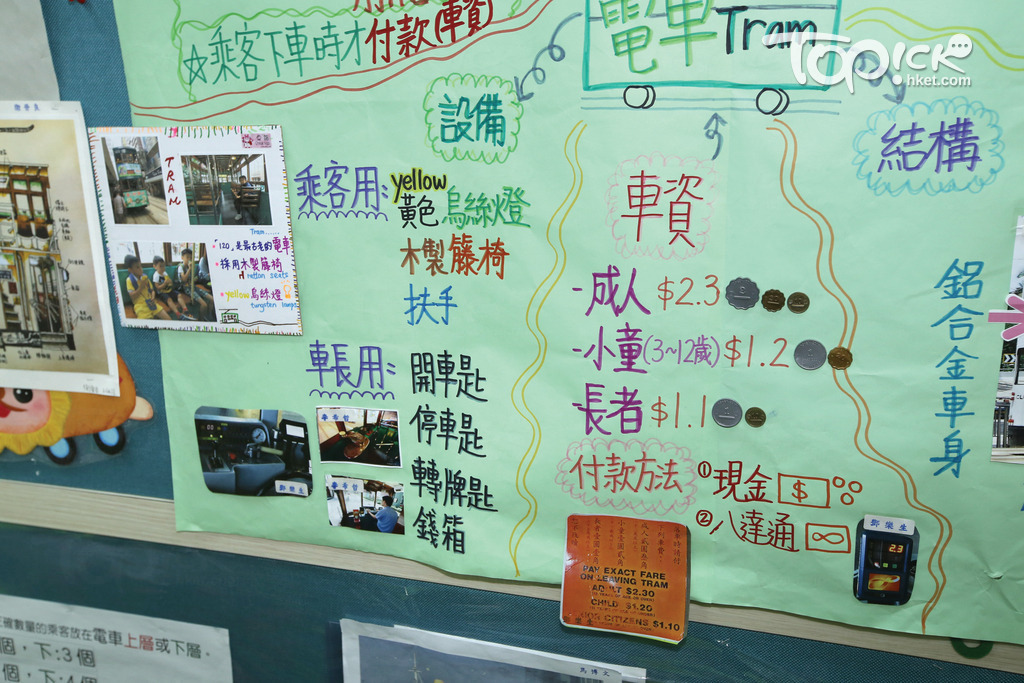 ☆乘客下車時才付款(車資)
電車 Tram
TOPick
hket.com
設備
結構
乘客用:
yellow
黃色
烏絲燈
木製籐椅
扶手
車長用:
開車匙
停車匙
轉牌匙
錢箱
車資
-成人 $2.3
-小童(3~12歲) $1.2
長者 $1.1
付款方法
①現金 $
②八達通
鋁合金車身
TRAM
Tram....
"120"是最古老的電車
採用木製籐椅
rattan seats
yellow烏絲燈
tungsten lamps
鄭樂生
鄭樂生
2.3
PAY EXACT FARE
ON LEAVING TRAM
ADULT $2.30
CHILD $1.20
CITIZENS $1.10
確數量的乘客放在電車上層或下層。
個,下:3個
個,下:4個